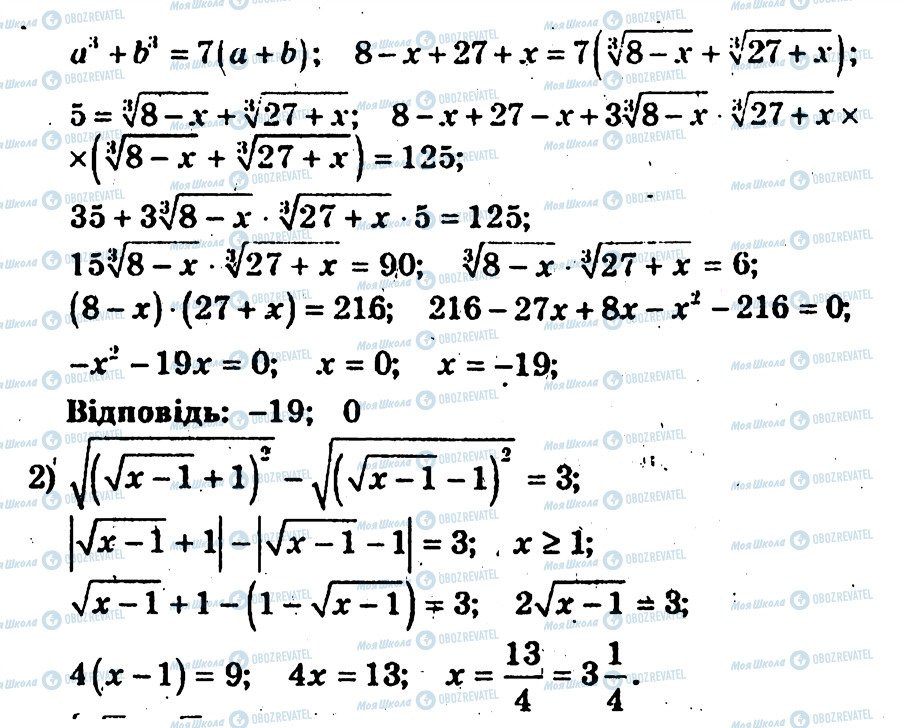 a³ + b³ = 7(a + b); 8 − x + 27 + x = 7(∛(8 − x) + ∛(27 + x));
5 = ∛(8 − x) + ∛(27 + x); 8 − x + 27 − x + 3∛(8 − x) · ∛(27 + x) ×
×(∛(8 − x) + ∛(27 + x)) = 125;
35 + 3∛(8 − x) · ∛(27 + x) · 5 = 125;
15∛(8 − x) · ∛(27 + x) = 90; ∛(8 − x) · ∛(27 + x) = 6;
(8 − x) · (27 + x) = 216; 216 − 27x + 8x − x² − 216 = 0;
−x² − 19x = 0; x = 0; x = −19;
Відповідь: −19; 0
2) √((√(x − 1) + 1)²) − √((√(x − 1) − 1)²) = 3;
|√(x − 1) + 1| − |√(x − 1) − 1| = 3; x ≥ 1;
√(x − 1) + 1 − (1 − √(x − 1)) = 3; 2√(x − 1) = 3;
4(x − 1) = 9; 4x = 13; x = 13/4 = 3 1/4.